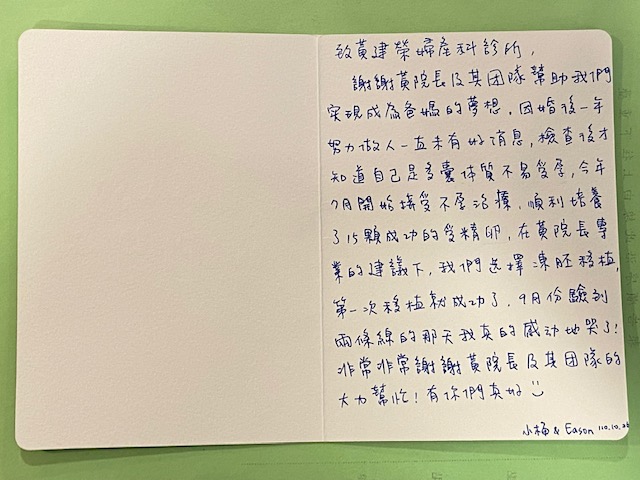 致黃建榮婦產科診所,
謝謝黃院長及其团隊幫助我們
实現成為爸媽的夢想,因婚後一年
努力做人一直未有好消息,檢查後才
知道自己是多囊体質不易受孕,今年
7月開始接受不孕治療,順利培養
了15顆成功的受精卵,在黃院長專
業的建議下,我們选擇凍胚移植,
第一次移植就成功了,9月份驗到
兩條線的那天我真的感动地哭了!
非常非常謝謝黃院長及其团隊的
大力幫忙!有你們真好
& Eason 110.10.